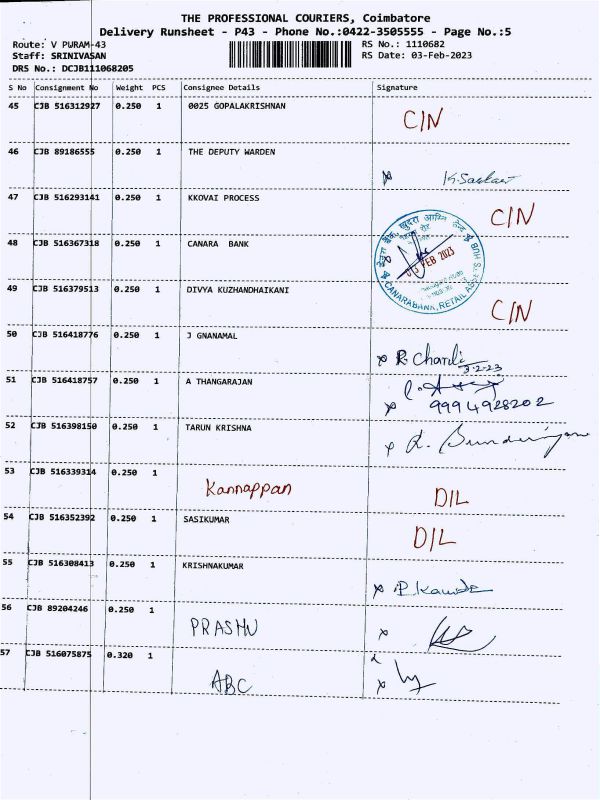 THE PROFESSIONAL COURIERS, Coimbatore
Delivery Runsheet - P43 - Phone No.:0422-3505555 - Page No.:5
Route: V PURAM-43 RS No.: 1110682
Staff: SRINIVASAN RS Date: 03-Feb-2023
DRS No.: DCJB111068205
S No Consignment No Weight PCS Consignee Details Signature
45 CJB 516312927 0.250 1 0025 GOPALAKRISHNAN C/N
46 CJB 89186555 0.250 1 THE DEPUTY WARDEN
47 CJB 516293141 0.250 1 KKOVAI PROCESS C/N
48 CJB 516367318 0.250 1 CANARA BANK
03 FEB 2023
CANARA BANK, RETAIL ASSET HUB
49 CJB 516379513 0.250 1 DIVYA KUZHANDHAIKANI C/N
50 CJB 516418776 0.250 1 J GNANAMAL R. Chandi
3-2-23
51 CJB 516418757 0.250 1 A THANGARAJAN
9994928202
52 CJB 516398150 0.250 1 TARUN KRISHNA
53 CJB 516339314 0.250 1 Kannappan D/L
54 CJB 516352392 0.250 1 SASIKUMAR D/L
55 CJB 516308413 0.250 1 KRISHNAKUMAR
56 CJB 89204246 0.250 1 PRASHU
57 CJB 516075875 0.320 1 ABC